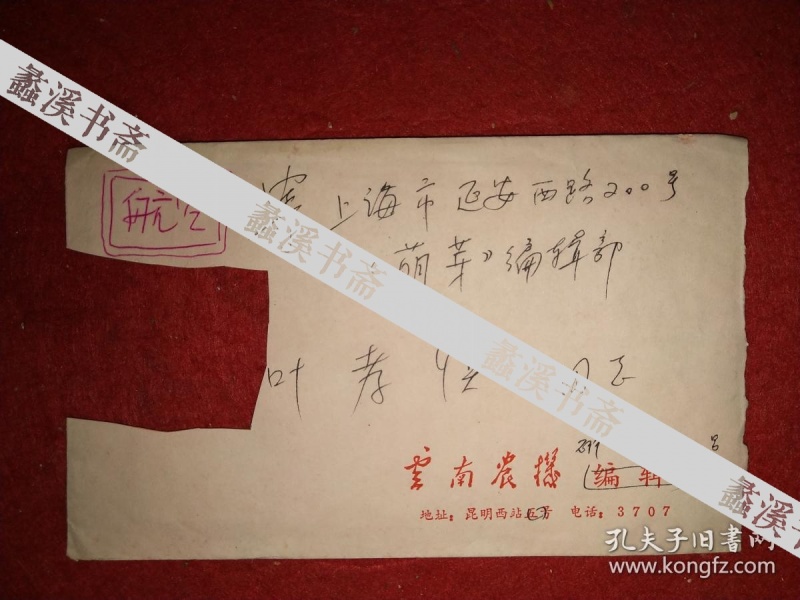 航空
上海市延安西路200号
萌芽》编辑部
叶孝慎 同志
云南农机 编辑
地址：昆明西站五号 电话：3707
蠡溪书斋
蠡溪书斋
蠡溪书斋
蠡溪书斋
孔夫子旧书网
www.kongfz.com